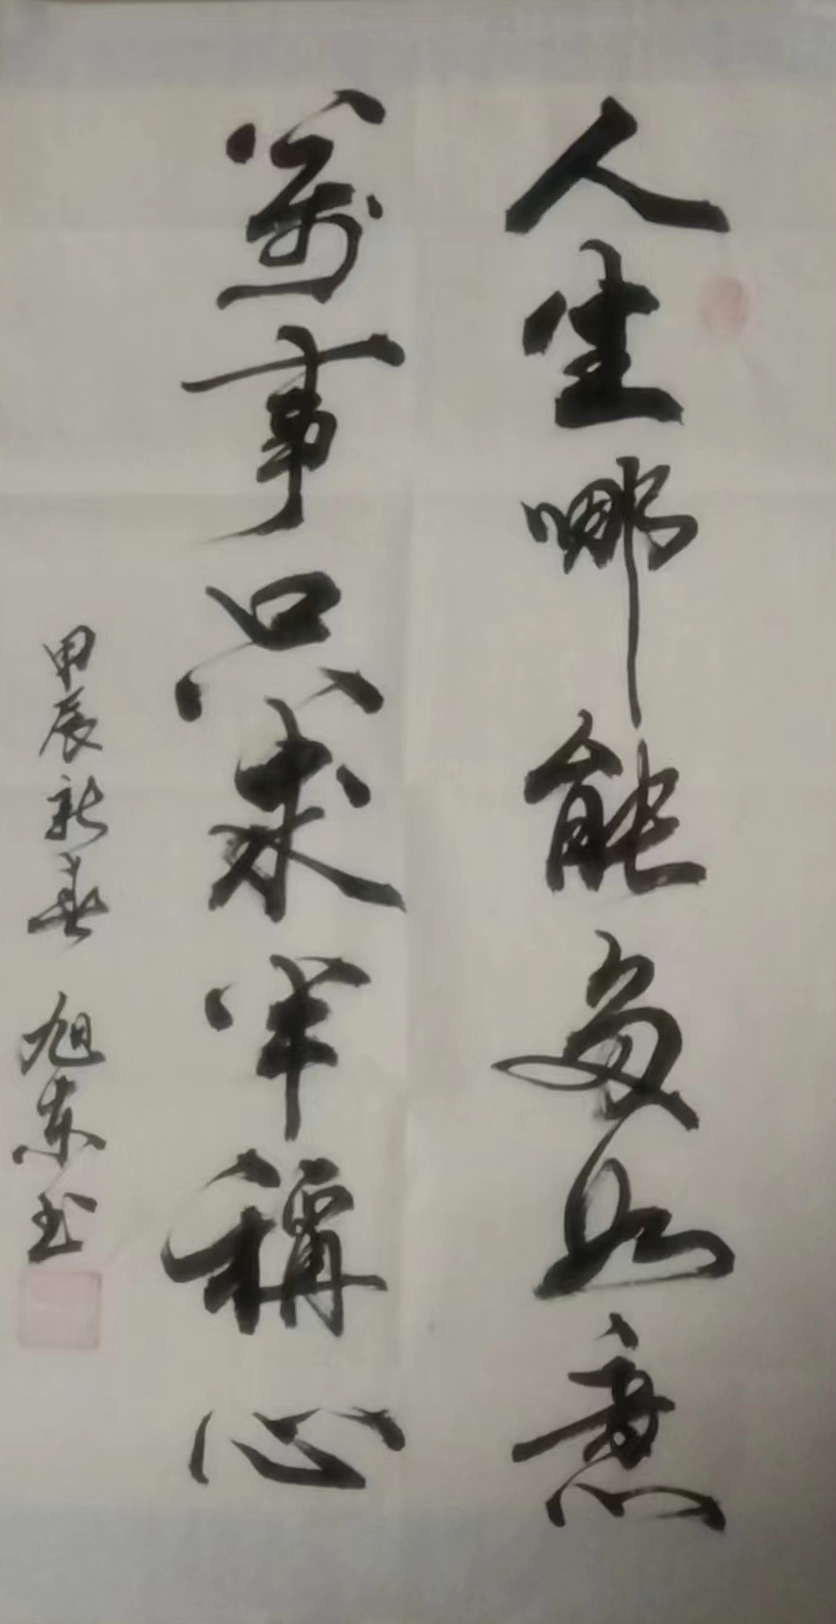 人生哪能多如意
萬事只求半稱心
甲辰新春 旭东书